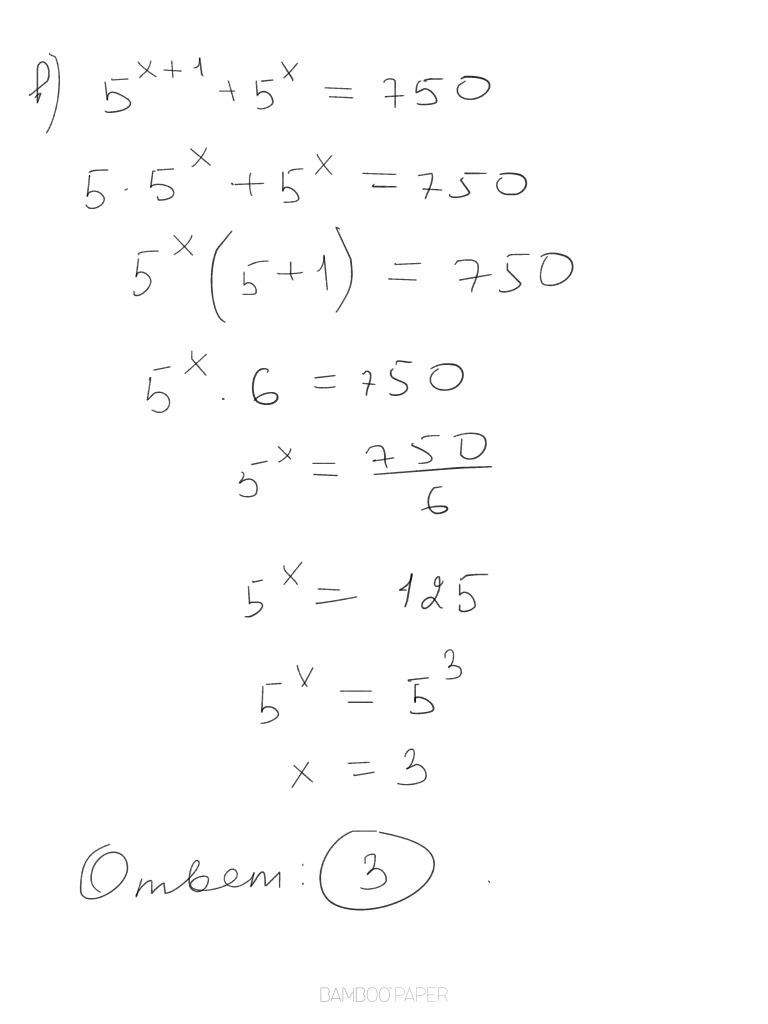 в) 5^{x+1} + 5^x = 750
5 · 5^x + 5^x = 750
5^x (5+1) = 750
5^x · 6 = 750
5^x = 750/6
5^x = 125
5^x = 5^3
x = 3
Ответ: 3.
BAMBOO PAPER